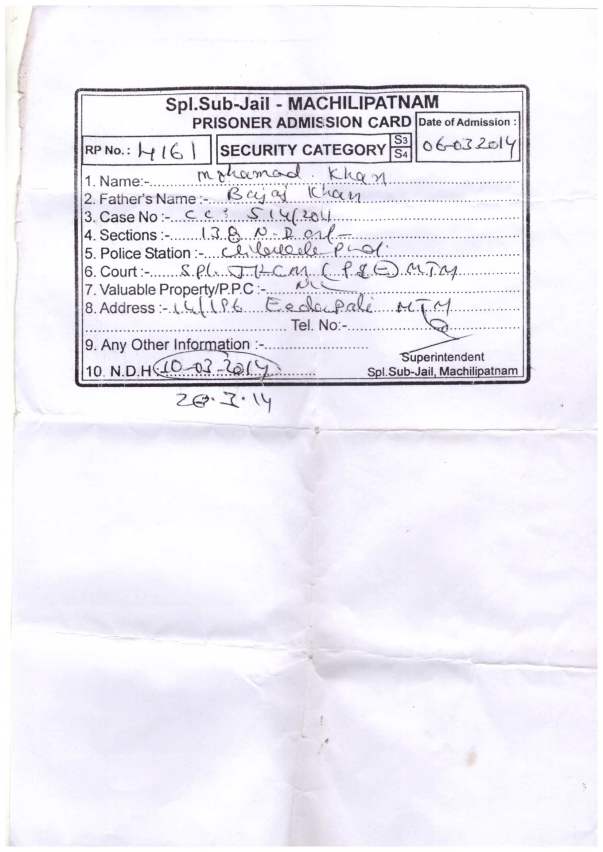 Spl.Sub-Jail - MACHILIPATNAM
PRISONER ADMISSION CARD
Date of Admission :
RP No.: 4161
SECURITY CATEGORY
S3
S4
06-03-2014
1. Name:- Mohamad. Khan
2. Father's Name :- Bajaj Khan
3. Case No :- CC: 514/2011
4. Sections :- 138 N.D.
5. Police Station :-
6. Court :- Spl. (P&E) MTM
7. Valuable Property/P.P.C :- NIL
8. Address :- 14/196 Eedepali MTM
Tel. No:-
9. Any Other Information :-
10. N.D.H 10-03-2014
Superintendent
Spl.Sub-Jail, Machilipatnam
20.3.14